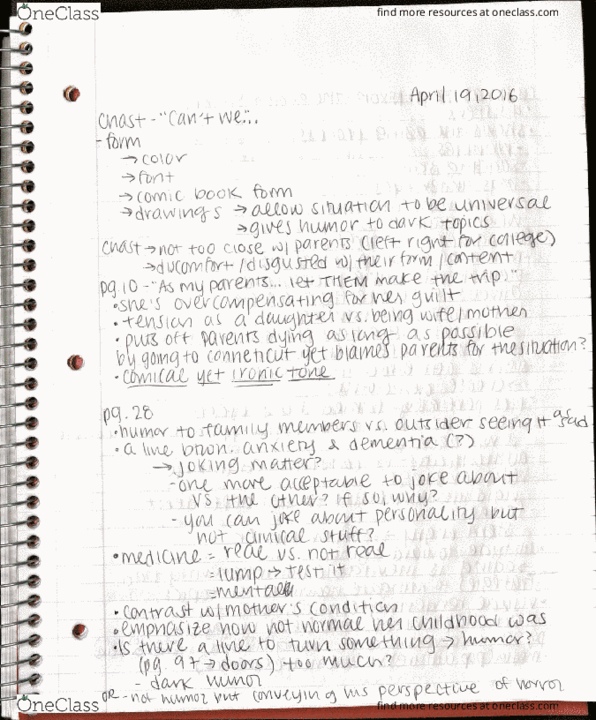 OneClass
find more resources at oneclass.com
April 19, 2016
Chast - "Can't we...
- form
→ color
→ font
→ comic book form
→ drawings → allow situation to be universal
→ gives humor to dark topics
Chast → not too close w/ parents (left right for college)
→ discomfort / disgusted w/ their form / content
pg. 10 - "As my parents... let THEM make the trip."
• she's overcompensating for her guilt
• tension as a daughter vs. being wife/mother
• puts off parents dying as long as possible
by going to conneticut yet blames parents for the situation?
• comical yet ironic tone
pg. 28
• humor to family members vs. outsider seeing it as sad
• a line btwn. anxiety & dementia (?)
→ joking matter?
- one more acceptable to joke about
vs. the other? if so, why?
- you can joke about personality but
not clinical stuff?
• medicine = real vs. not real
= lump → test it
= mental
• contrast w/ mother's condition
• emphasize how not normal her childhood was
• Is there a line to turn something → humor?
(pg. 97 → doors) too much?
- dark humor
or - not humor but conveying his perspective of horror
OneClass
find more resources at oneclass.com